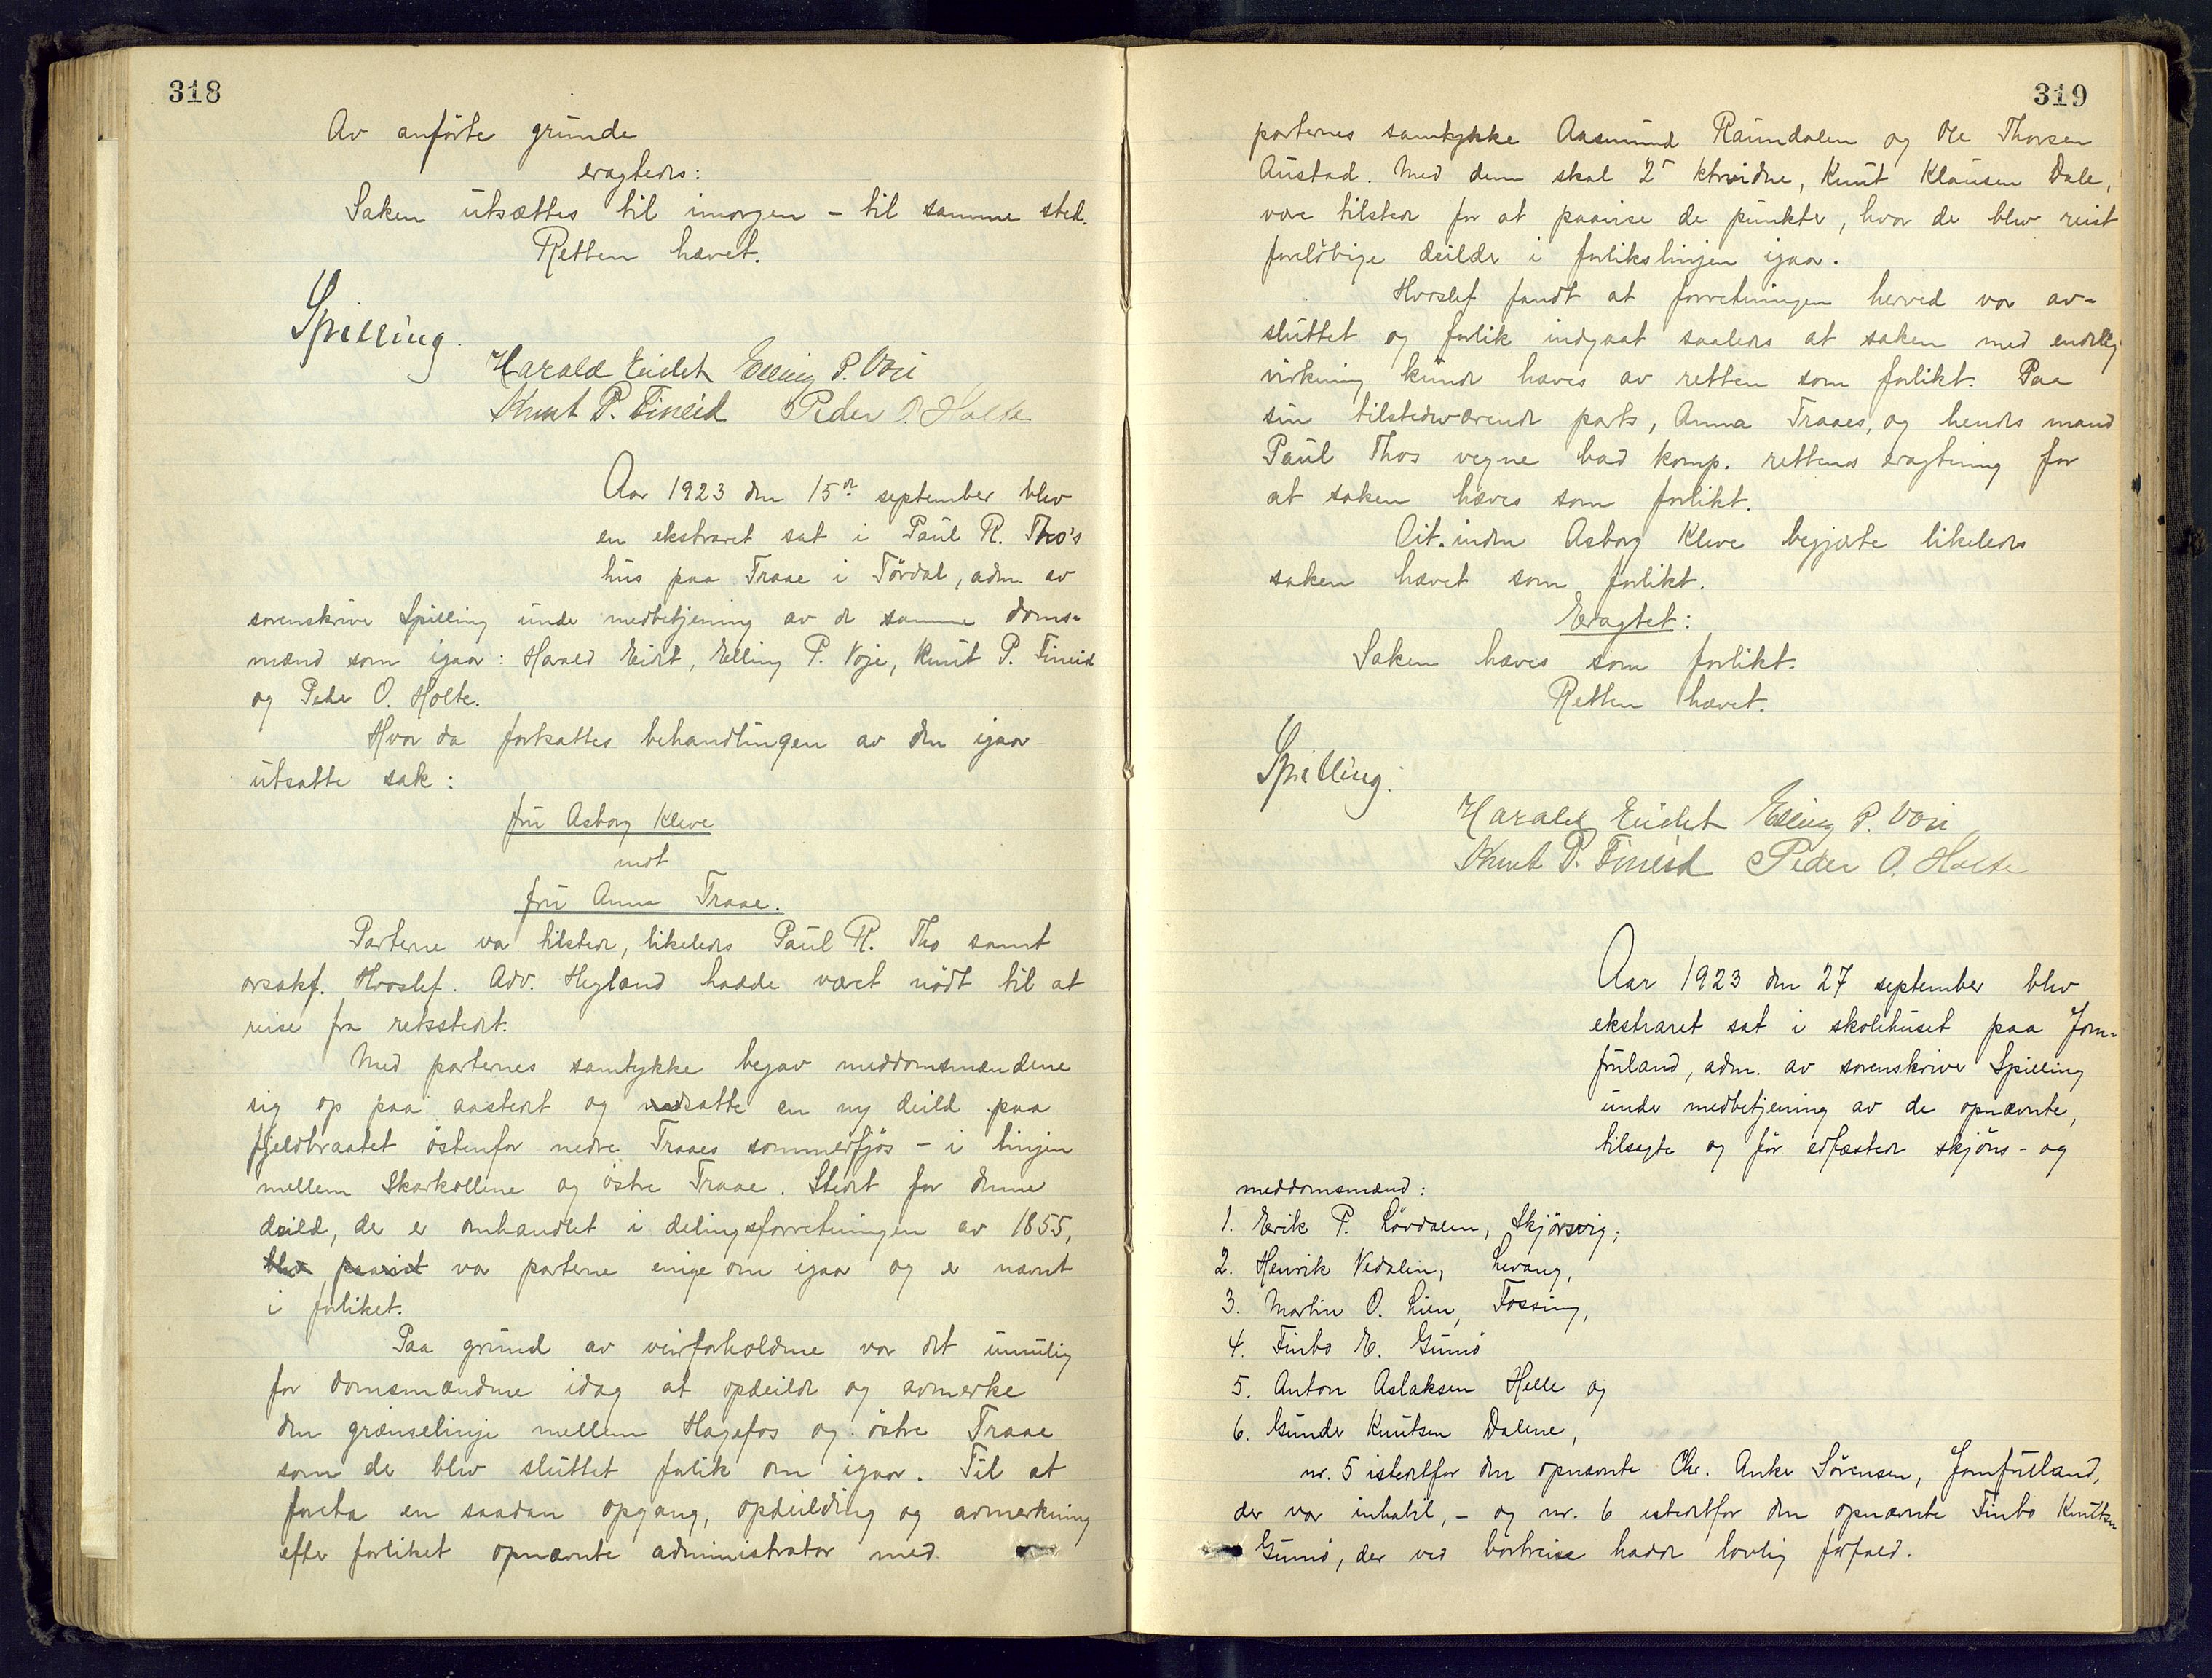 318
Av anförte grunde
eragtedes:
Saken utsættes til imorgen – til samme sted.
Retten hævet.
Spilling.
Harald Eidet Elling P. Voie
Knut P. Fineid Peder O. Holte
Aar 1923 den 15de september blev
en ekstraret sat i Paul R. Tho's
hus paa Traae i Tördal, adm. av
sorenskriver Spilling under medbetjening av de samme doms-
mænd som igaar: Harald Eidet, Elling P. Voje, Knut P. Fineid
og Peder O. Holte.
Hvor da fortsattes behandlingen av den igaar
utsatte sak:
fru Asborg Kleve
mot
fru Anna Traae.
Parterne var tilstede, likeledes Paul R. Tho samt
orsakf. Hvoslef. Adv. Heyland hadde været nödt til at
reise fra retsstedet.
Med parternes samtykke begav meddomsmændene
sig op paa aastedet og nedsatte en ny deild paa
fjeldbraatet östenfor nedre Traaes sommerfjös – i linjen
mellem Skarkollene og östre Traae. Stedet for denne
deild, der er omhandlet i delingsforretningen av 1855,
blev paavist var parterne enige om igaar og er nævnt
i forliket.
Paa grund av veirforholdene var det umulig
for domsmændene idag at opdeilde og avmerke
den grænselinje mellem Hagefos og östre Traae
som der blev sluttet forlik om igaar. Til at
foreta en saadan opgang, opdeilding og avmerkning
efter forliket opnævnte administrator med
319
parternes samtykke Aasmund Raundalen og Ole Thorsen
Austad. Med dem skal 2det ktrvidne, Knut Klausen Dale,
være tilstede for at paavise de punkter, hvor de blev reist
foreløbige deilder i forlikslinjen igaar.
Hvoslef fandt at forretningen herved var av-
sluttet og forlik indgaat saaledes at saken med endelig
virkning kunde hæves av retten som forlikt. Paa
sin tilstedeværende parts, Anna Traaes, og hendes mand
Paul Thos vegne bad komp. rettens eragtning for
at saken hæves som forlikt.
Citinden Asborg Kleve begjærte likeledes
saken hævet som forlikt.
Eragtet:
Saken hæves som forlikt.
Retten hævet.
Spilling.
Harald Eidet Elling P. Voie
Knut P. Fineid Peder O. Holte
Aar 1923 den 27 september blev
ekstraret sat i skolehuset paa Jom-
fruland, adm. av sorenskriver Spilling
under medbetjening av de opnævnte,
tilsagte og för edfæstede skjöns- og
meddomsmænd:
1. Erik P. Lövdalen, Skjörsvig,
2. Henrik Vedalen, Levang,
3. Martin O. Lien, Fossing,
4. Finbo E. Gumö
5. Anton Aslaksen Helle og
6. Gunder Knutsen Dalene,
nr. 5 istedetfor den opnævnte Chr. Anker Sörensen, Jomfruland,
der var inhabil, – og nr. 6 istedetfor den opnævnte Finbo Knutsen
Gumö, der ved bortreise hadde lovlig forfald.